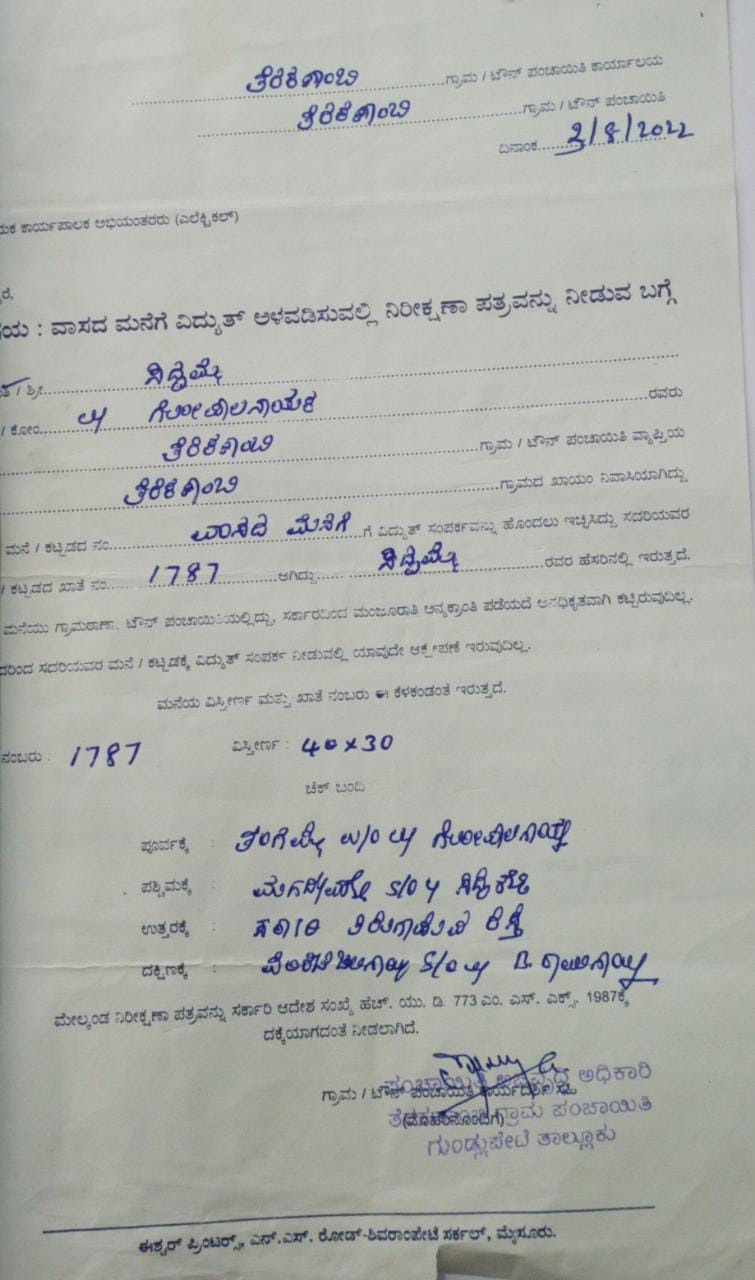 ತೆರಕಣಾಂಬಿ ಗ್ರಾಮ / ಟೌನ್ ಪಂಚಾಯಿತಿ ಕಾರ್ಯಾಲಯ
ತೆರಕಣಾಂಬಿ ಗ್ರಾಮ / ಟೌನ್ ಪಂಚಾಯಿತಿ
ದಿನಾಂಕ 2/8/2022
ಯಕ ಕಾರ್ಯಪಾಲಕ ಅಭಿಯಂತರರು (ಎಲೆಕ್ಟ್ರಿಕಲ್)
ರೆ,
ಯ : ವಾಸದ ಮನೆಗೆ ವಿದ್ಯುತ್ ಅಳವಡಿಸುವಲ್ಲಿ ನಿರೀಕ್ಷಣಾ ಪತ್ರವನ್ನು ನೀಡುವ ಬಗ್ಗೆ
/ ಶ್ರೀ ಸಿದ್ದಮ್ಮ
/ ಕೋಂ ರವರು
ತೆರಕಣಾಂಬಿ ಗ್ರಾಮ / ಟೌನ್ ಪಂಚಾಯಿತಿ ವ್ಯಾಪ್ತಿಯ
ತೆರಕಣಾಂಬಿ ಗ್ರಾಮದ ಖಾಯಂ ನಿವಾಸಿಯಾಗಿದ್ದು
ಮನೆ / ಕಟ್ಟಡದ ನಂ. ವಾಸದ ಮನೆಗೆ ಗೆ ವಿದ್ಯುತ್ ಸಂಪರ್ಕವನ್ನು ಹೊಂದಲು ಇಚ್ಛಿಸಿದ್ದು ಸದರಿಯವರ
/ ಕಟ್ಟಡದ ಖಾತೆ ನಂ. 1787 ಆಗಿದ್ದು ಸಿದ್ದಮ್ಮ ರವರ ಹೆಸರಿನಲ್ಲಿ ಇರುತ್ತದೆ.
ಮನೆಯು ಗ್ರಾಮಠಾಣಾ, ಟೌನ್ ಪಂಚಾಯಿತಿಯಲ್ಲಿದ್ದು, ಸರ್ಕಾರದಿಂದ ಮಂಜೂರಾತಿ ಅನ್ಯಕ್ರಾಂತಿ ಪಡೆಯದೆ ಅನಧಿಕೃತವಾಗಿ ಕಟ್ಟಿರುವುದಿಲ್ಲ.
ದರಿಂದ ಸದರಿಯವರ ಮನೆ / ಕಟ್ಟಡಕ್ಕೆ ವಿದ್ಯುತ್ ಸಂಪರ್ಕ ನೀಡುವಲ್ಲಿ ಯಾವುದೇ ಆಕ್ಷೇಪಣೆ ಇರುವುದಿಲ್ಲ.
ಮನೆಯ ವಿಸ್ತೀರ್ಣ ಮತ್ತು ಖಾತೆ ನಂಬರು ಈ ಕೆಳಕಂಡಂತೆ ಇರುತ್ತದೆ.
ನಂಬರು : 1787 ವಿಸ್ತೀರ್ಣ : 40x30
ಚೆಕ್ ಬಂದಿ
ಪೂರ್ವಕ್ಕೆ :
ಪಶ್ಚಿಮಕ್ಕೆ : S/O
ಉತ್ತರಕ್ಕೆ :
ದಕ್ಷಿಣಕ್ಕೆ : S/O
ಮೇಲ್ಕಂಡ ನಿರೀಕ್ಷಣಾ ಪತ್ರವನ್ನು ಸರ್ಕಾರಿ ಆದೇಶ ಸಂಖ್ಯೆ ಹೆಚ್. ಯು. ಡಿ. 773 ಎಂ. ಎಸ್. ಎಕ್ಸ್. 1987ಕ್ಕೆ
ದಕ್ಕೆಯಾಗದಂತೆ ನೀಡಲಾಗಿದೆ.
ಗ್ರಾಮ / ಟೌನ್ ಪಂಚಾಯಿತಿ ಕಾರ್ಯದರ್ಶಿ ಸಹಿ
(ಮೊಹರಿನೊಂದಿಗೆ)
ಪಂಚಾಯಿತಿ ಅಭಿವೃದ್ಧಿ ಅಧಿಕಾರಿ
ತೆರಕಣಾಂಬಿ ಗ್ರಾಮ ಪಂಚಾಯಿತಿ
ಗುಂಡ್ಲುಪೇಟೆ ತಾಲ್ಲೂಕು
ಈಶ್ವರ್ ಪ್ರಿಂಟರ್ಸ್, ಎನ್.ಎಸ್. ರೋಡ್-ಶಿವರಾಂಪೇಟೆ ಸರ್ಕಲ್, ಮೈಸೂರು.